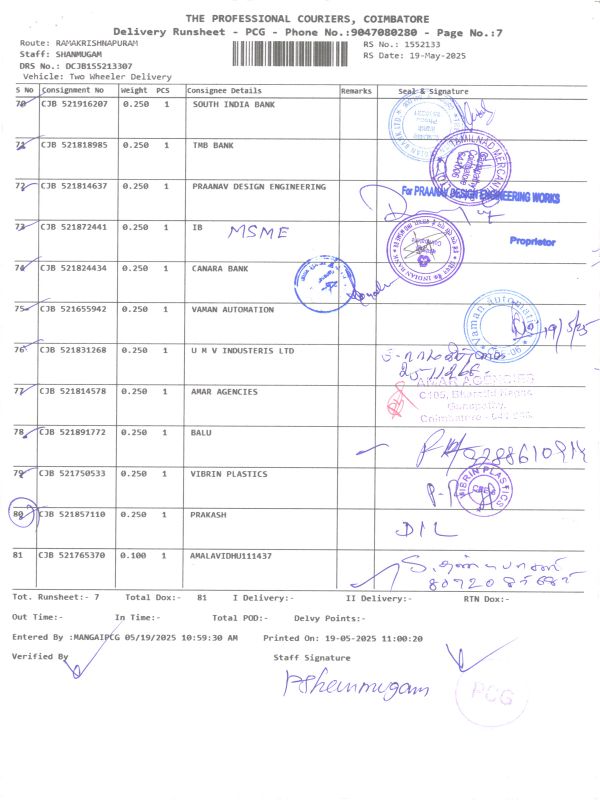 THE PROFESSIONAL COURIERS, COIMBATORE
Delivery Runsheet - PCG - Phone No.:9047080280 - Page No.:7
Route: RAMAKRISHNAPURAM RS No.: 1552133
Staff: SHANMUGAM RS Date: 19-May-2025
DRS No.: DCJB155213307
Vehicle: Two Wheeler Delivery
S No Consignment No Weight PCS Consignee Details Remarks Seal & Signature
70 CJB 521916207 0.250 1 SOUTH INDIA BANK
71 CJB 521818985 0.250 1 TMB BANK
TAMILNAD MERCAN
72 CJB 521814637 0.250 1 PRAANAV DESIGN ENGINEERING
For PRAANAV DESIGN ENGINEERING WORKS
73 CJB 521872441 0.250 1 IB MSME
Proprietor
INDIAN BANK
74 CJB 521824434 0.250 1 CANARA BANK
75 CJB 521655942 0.250 1 VAMAN AUTOMATION
Vaman automation
19/5/25
76 CJB 521831268 0.250 1 U M V INDUSTERIS LTD
77 CJB 521814578 0.250 1 AMAR AGENCIES
AMAR AGENCIES
Ganapathy,
78 CJB 521891772 0.250 1 BALU
79 CJB 521750533 0.250 1 VIBRIN PLASTICS
VIBRIN PLASTICS
CBE
80 CJB 521857110 0.250 1 PRAKASH
D/L
81 CJB 521765370 0.100 1 AMALAVIDHU111437
Tot. Runsheet:- 7 Total Dox:- 81 I Delivery:- II Delivery:- RTN Dox:-
Out Time:- In Time:- Total POD:- Delvy Points:-
Entered By :MANGAIPCG 05/19/2025 10:59:30 AM Printed On: 19-05-2025 11:00:20
Verified By Staff Signature
PCG